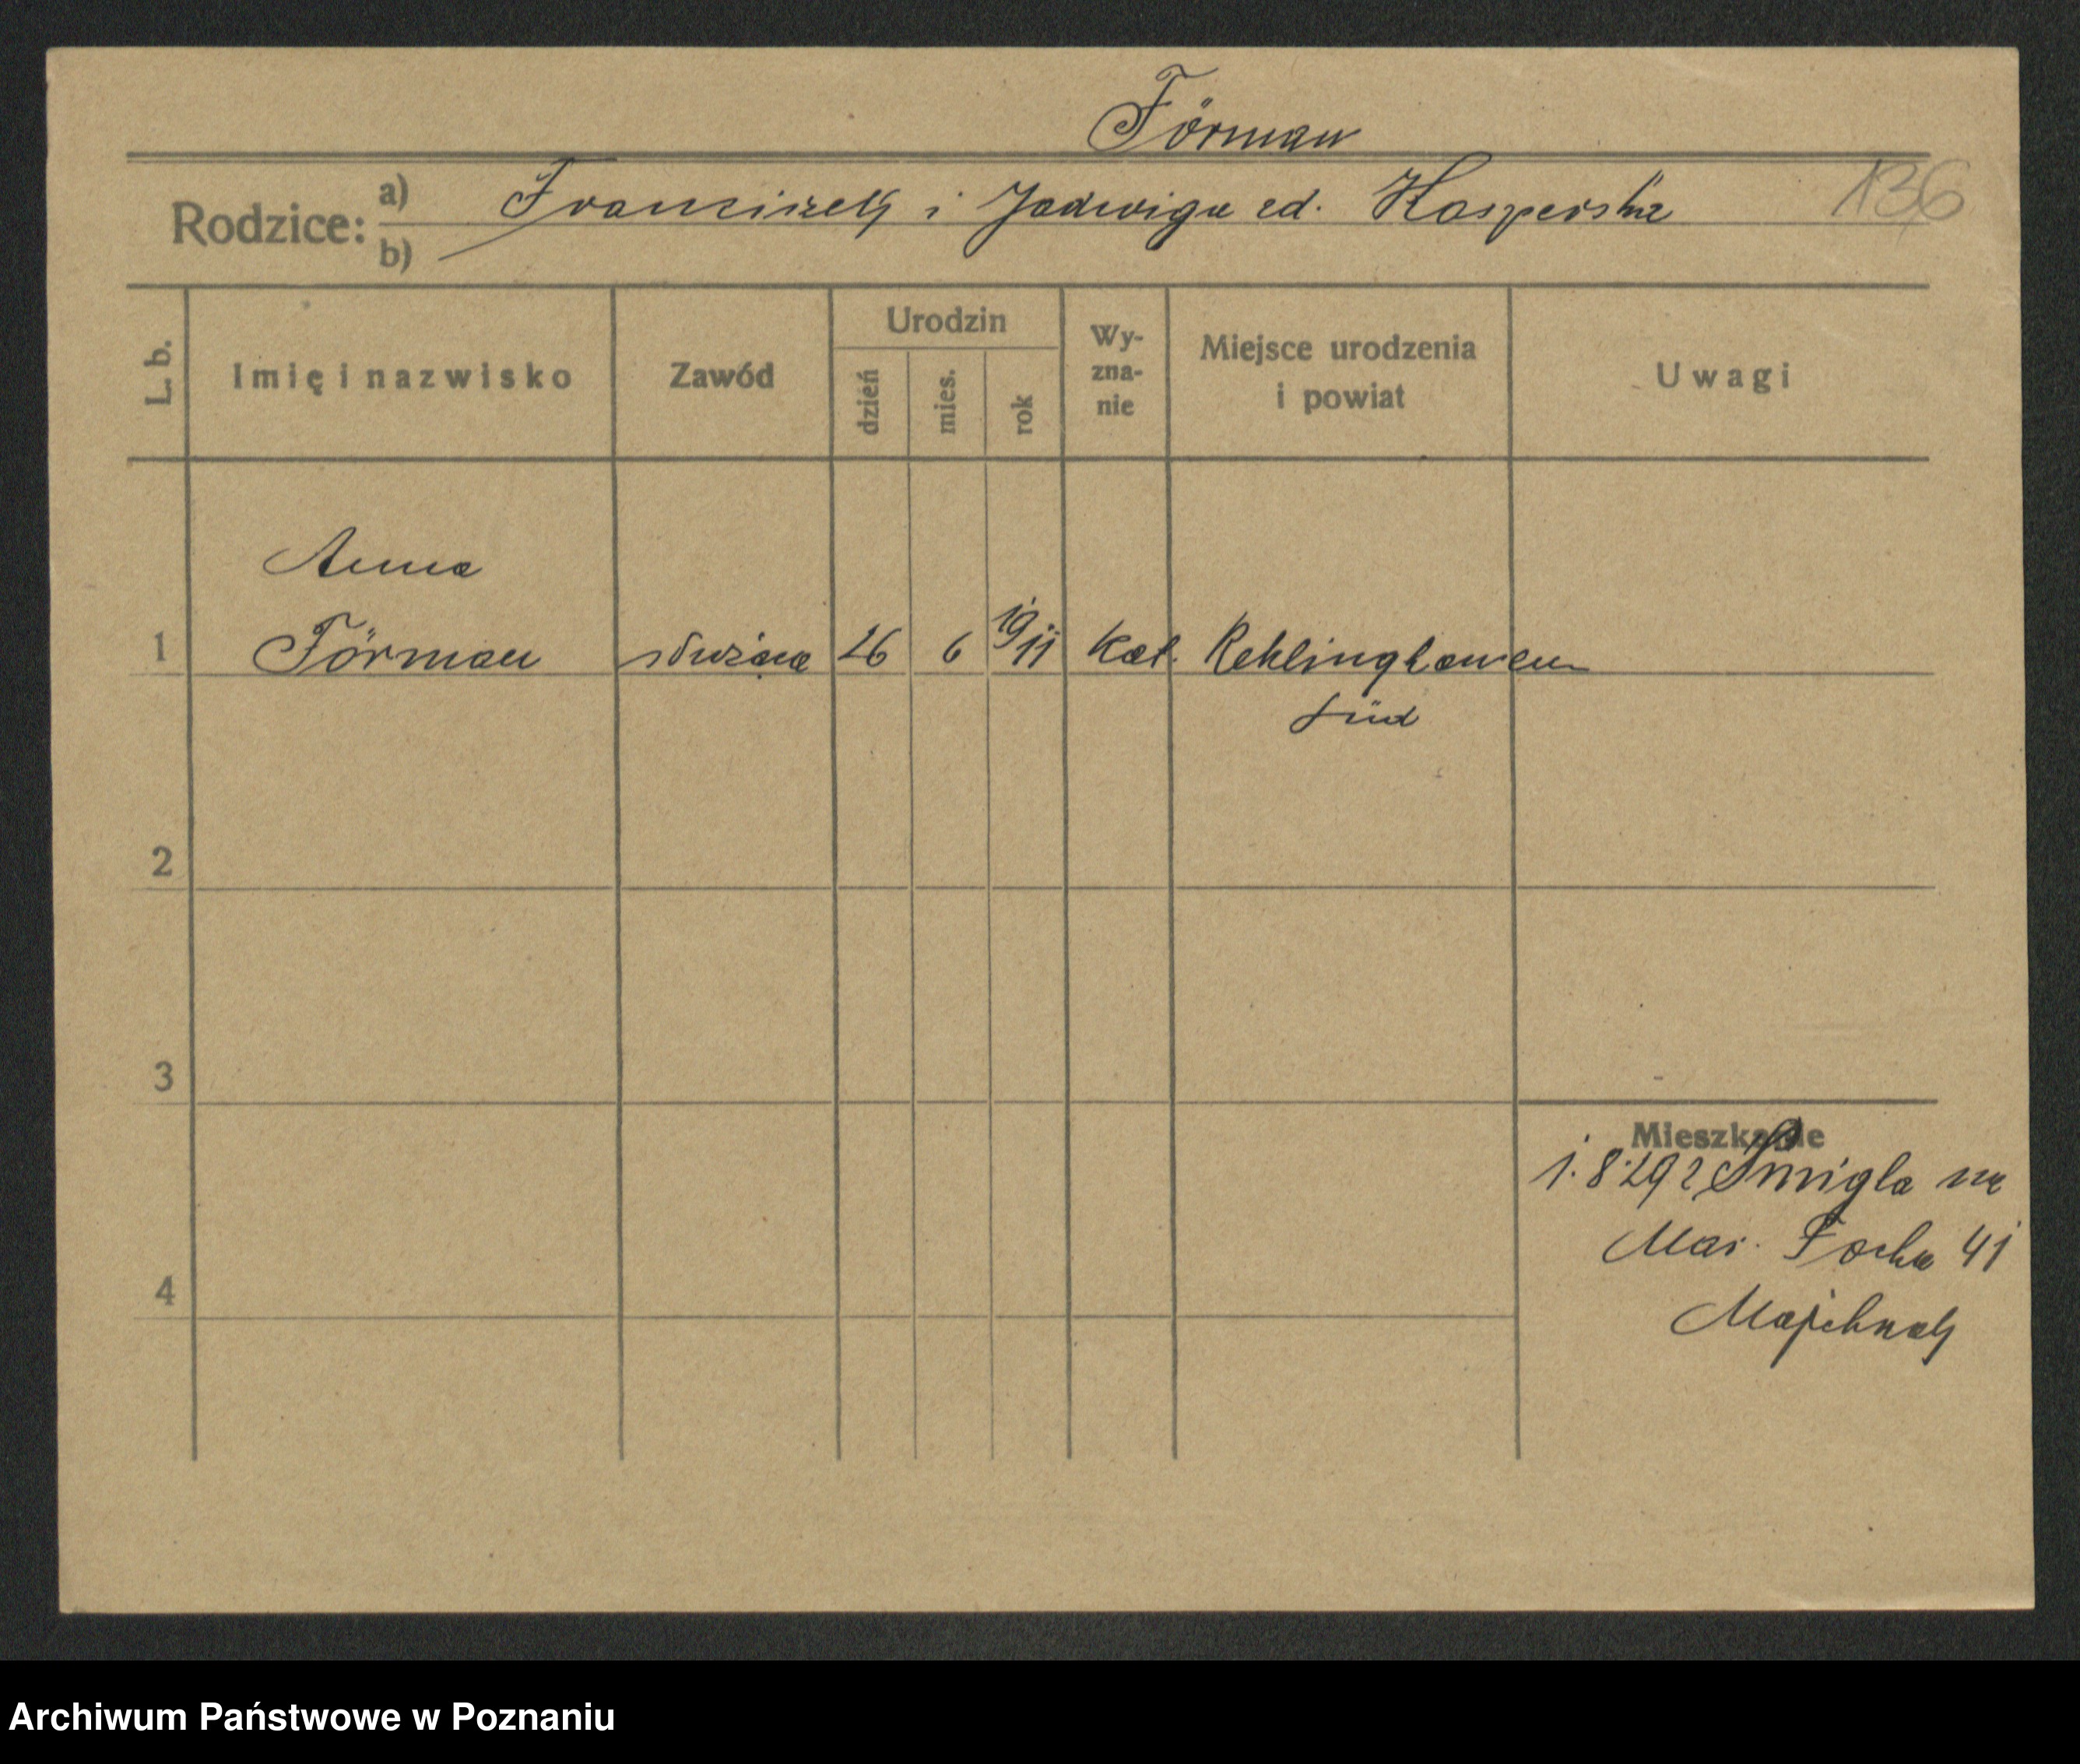 Förman
136
Rodzice: a) Franciszek i Jadwiga zd. Kasperska
b)
L. b.
Imię i nazwisko
Zawód
Urodzin
dzień
mies.
rok
Wy-
zna-
nie
Miejsce urodzenia
i powiat
Uwagi
Anna
1 Förman służąca 26 6 19/11 Kat. Reklinghausen
Süd
2
3
4
Mieszkanie
1.8.29 z Śmigla na
Mar. Focha 41
Majchrzak
Archiwum Państwowe w Poznaniu